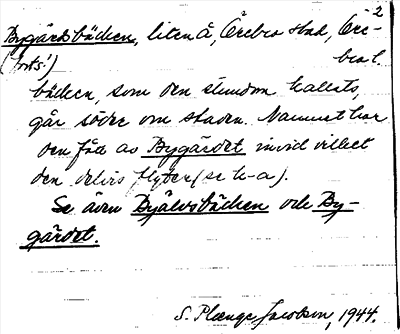 2
Bygärdsbäcken, liten å, Örebro stad, Öre-
(forts.) bro l.
bäcken, som den stundom kallats,
går söder om staden. Namnet har
den fått av Bygärdet invid vilket
den delvis flyter (se h-a).
Se även Byälvsbäcken och By-
gärdet.
S. Plænge Jacobson, 1944.